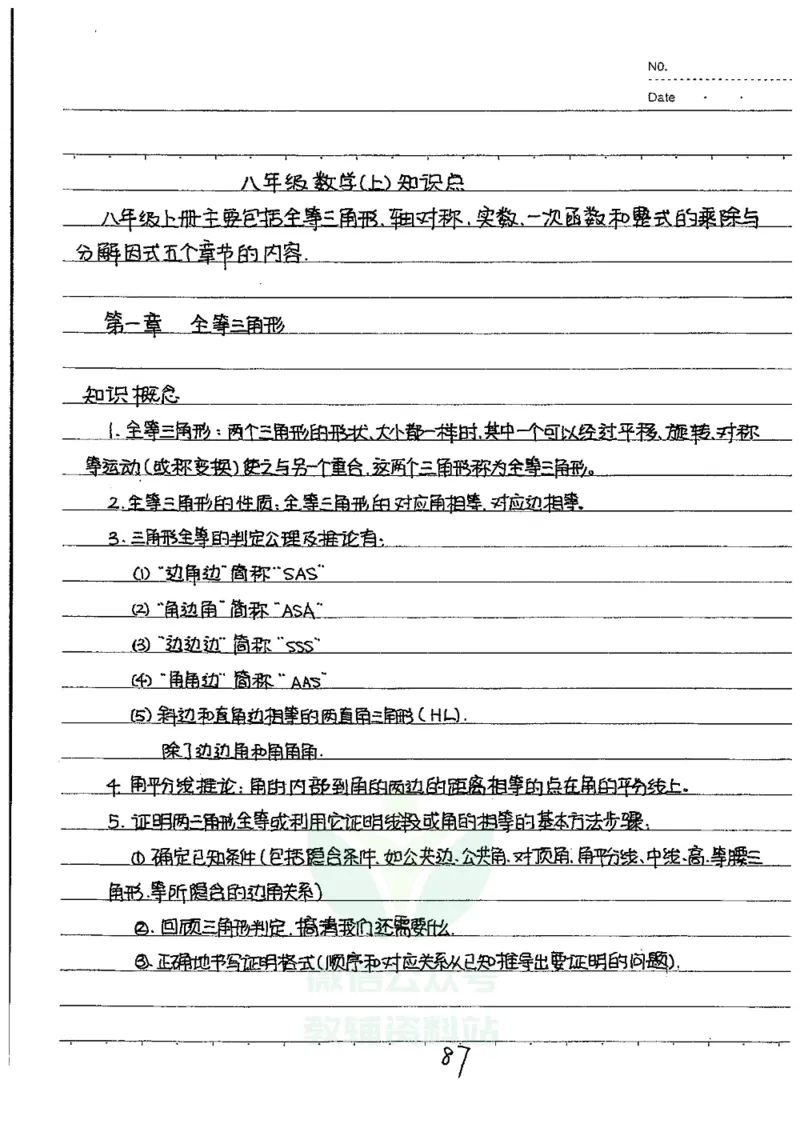 NO.
Date
八年级数学(上)知识点
八年级上册主要包括全等三角形、轴对称、实数、一次函数和整式的乘除与
分解因式五个章节的内容.
第一章 全等三角形
知识概念
1.全等三角形:两个三角形的形状、大小都一样时,其中一个可以经过平移、旋转、对称
等运动(或称变换)使之与另一个重合,这两个三角形称为全等三角形。
2.全等三角形的性质:全等三角形的对应角相等、对应边相等。
3.三角形全等的判定公理及推论有:
(1)“边角边”简称“SAS”
(2)“角边角”简称“ASA”
(3)“边边边”简称“SSS”
(4)“角角边”简称“AAS”
(5)斜边和直角边相等的两直角三角形(HL).
除了边边角和角角角.
4.角平分线推论:角的内部到角的两边的距离相等的点在角的平分线上。
5.证明两三角形全等或利用它证明线段或角的相等的基本方法步骤:
①确定已知条件(包括隐含条件,如公共边、公共角、对顶角、角平分线、中线、高、等腰三
角形、等所隐含的边角关系)
②.回顾三角形判定,搞清我们还需要什么.
③.正确地书写证明格式(顺序和对应关系从已知推导出要证明的问题).
微信公众号
教辅资料站
87